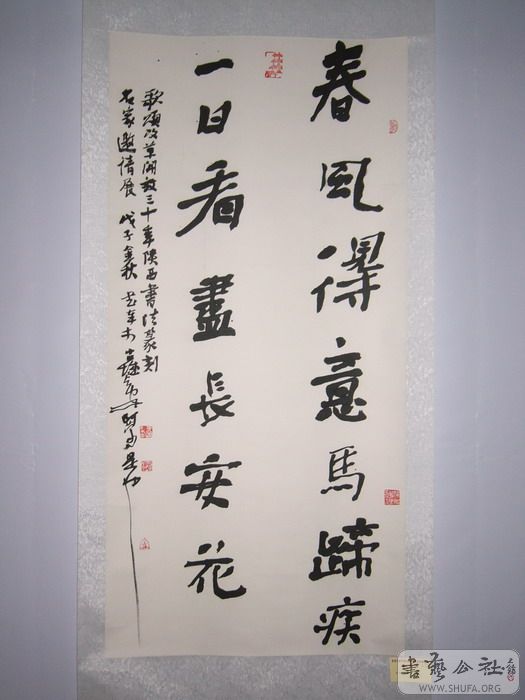 春風得意馬蹄疾
一日看盡長安花
歌頌改革開放三十年陝西書法篆刻
名家邀請展 戊子金秋
書藝公社
WWW.SHUFA.ORG